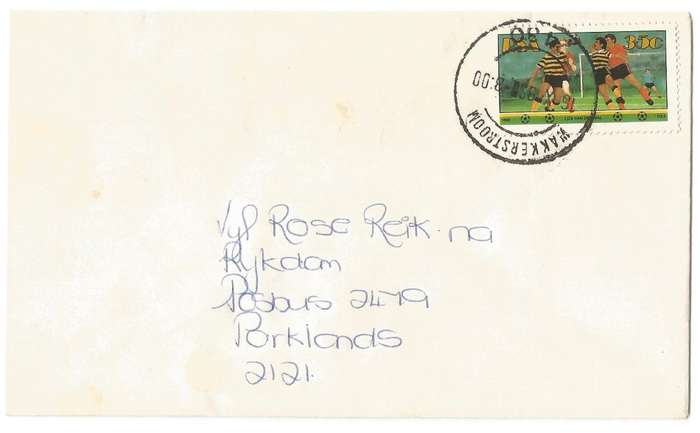 RSA 35c
WAKKERSTROOM
8:00
Vyf Rose Reik·na
Rykdom
Posbus 2479
Parklands
2121.